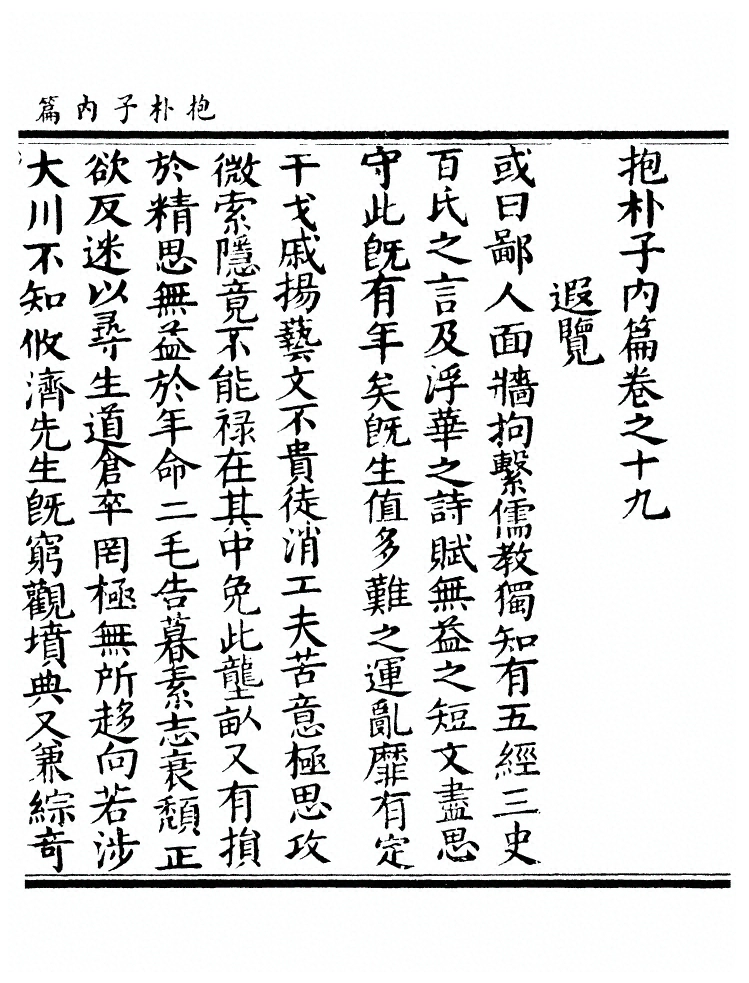 抱朴子內篇
抱朴子內篇卷之十九
遐覽
或曰鄙人面牆拘繫儒教獨知有五經三史
百氏之言及浮華之詩賦無益之短文盡思
守此旣有年矣旣生值多難之運亂靡有定
干戈戚揚藝文不貴徒消工夫苦意極思攻
微索隱竟不能祿在其中免此壟畝又有損
於精思無益於年命二毛告暮素志衰頹正
欲反迷以尋生道倉卒罔極無所趍向若涉
大川不知攸濟先生旣窮觀墳典又兼綜奇